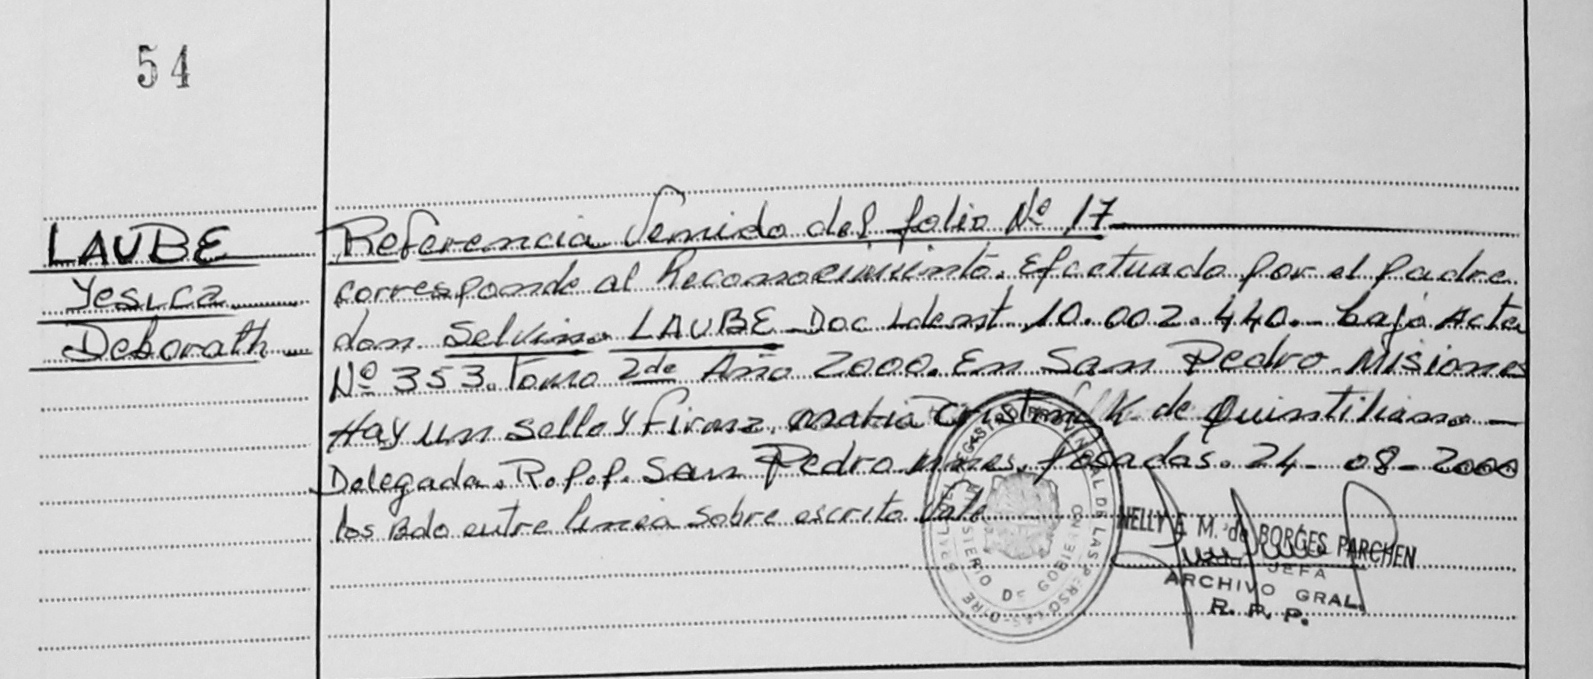 54
LAUBE
Yesica
Deborath
Referencia Venida del folio Nº 17
corresponde al Reconocimiento. Efectuado por el padre
don Selvino LAUBE Doc Ident 10.002.440.- bajo Acta
Nº 353. Tomo 2do Año 2000. En San Pedro. Misiones
Hay un sello y firma. Maria Cristina K de Quintiliano -
Delegada. R.P.P. San Pedro Mnes. Posadas. 24-08-2000
los Bdo entre linea sobre escrito Vale
NELLY E. M. de BORGES PARCHEN
JEFA
ARCHIVO GRAL.
R. P. P.
REGISTRO PROVINCIAL DE LAS PERSONAS
MINISTERIO DE GOBIERNO